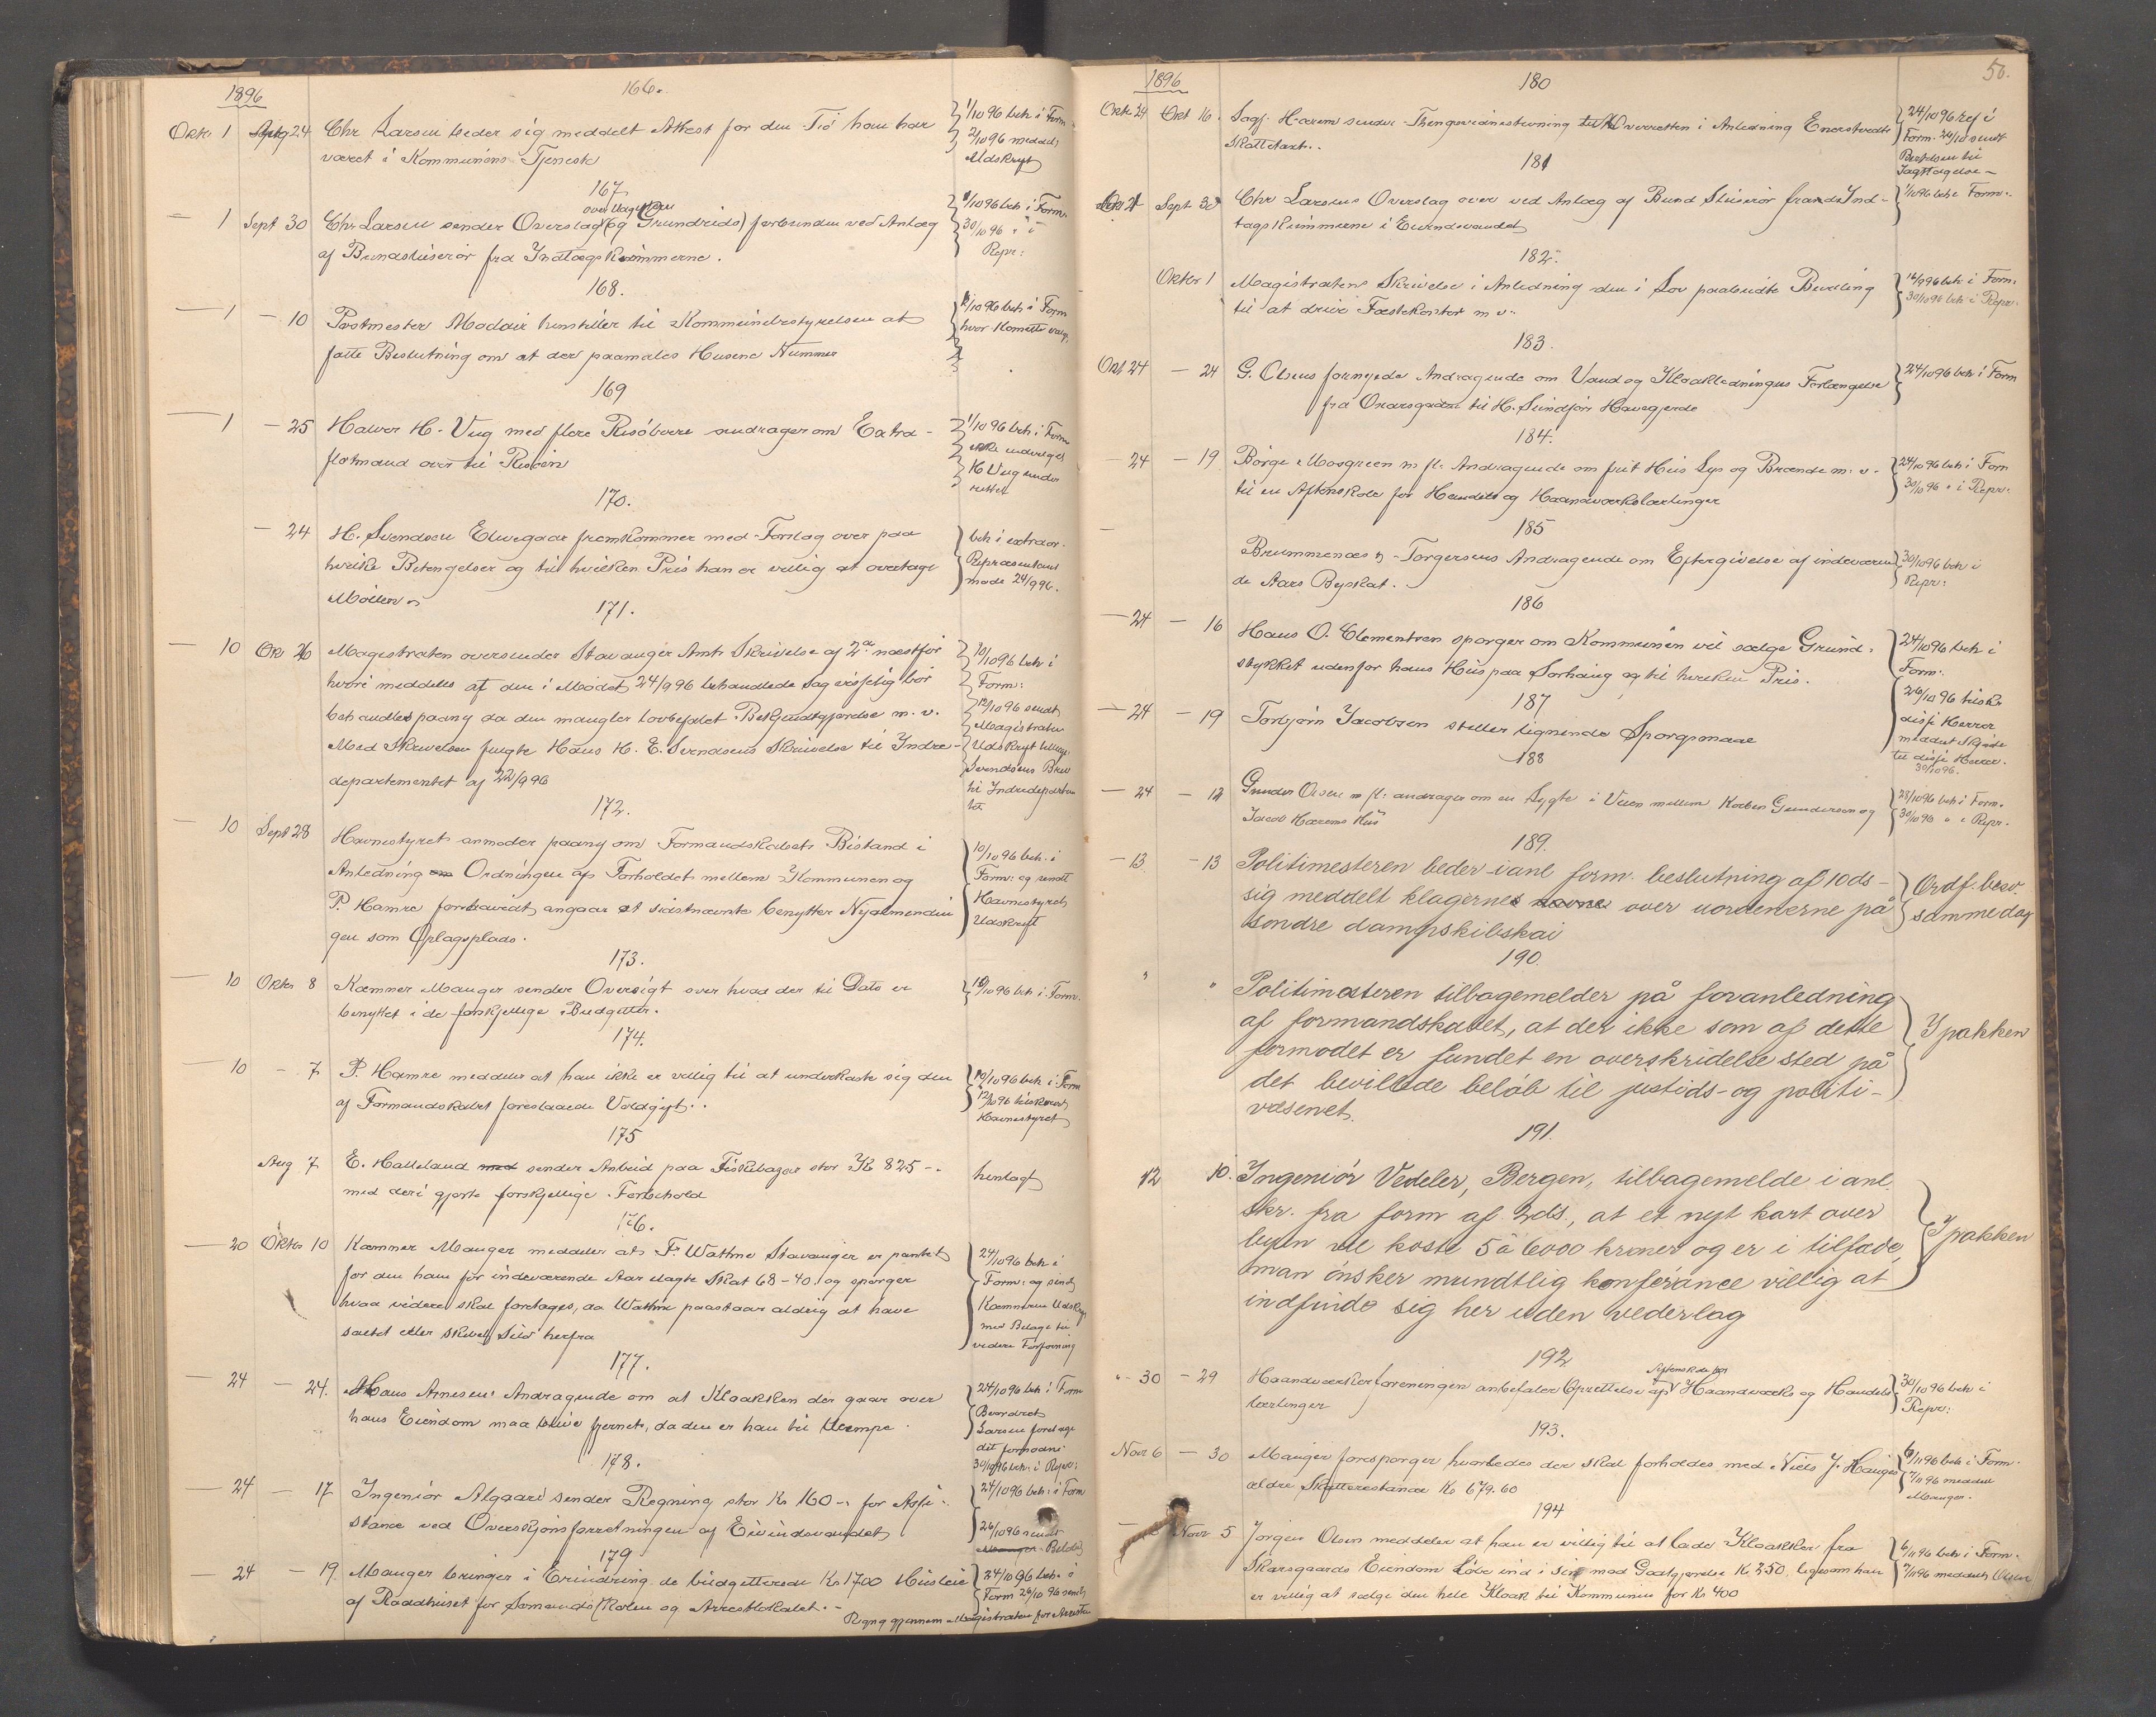 1896
166.
Oktr 1 Septr 24 Chr Larsen beder sig meddelt Attest for den Tid han har
været i Kommunens Tjeneste
1/10 96 beh i Form
2/10 96 meddelt
Udskrift
167
over Udgifterne
— 1 Sept 30 Chr Larsen sender Overslag (og Grundrids) forbunden ved Anlæg
af Bundsluserør fra Indtagskummerne.
1/10 96 beh i Form.
30/10 96 " i
Repr:
168.
— 1 — 10 Postmester Modair henstiller til Kommunebestyrelsen at
fatte Beslutning om at der paamales Husene Nummer
1/10 96 beh i Form
hvor Komitte valg.
169
— 1 — 25 Halvor H. Vug med flere Risøboere andrager om Extra-
flotmand over til Risøen
1/10 96 beh i Form
ikke indvilget
H Vug under
rettet
170.
— 24 H. Svendsen Elvegaar fremkommer med Forslag over paa
hvilke Betengelser og til hvilken Pris han er villig at overtage
Møllen
beh i extraor.
Repræsentant
møde 24/9 96.
171.
— 10 Okt 26 Magistraten oversender Stavanger Amts Skrivelse af 2den næstfør
hvori meddeles at den i Mødet 24/9 96 behandlede Sag visselig bør
behandles paany da den mangler lovbefalet Bekjendtgjørelse m. v.
Med Skrivelsen fulgte Hans H. E. Svendsens Skrivelse til Indre-
departementet af 22/9 96
10/10 96 beh i
Form:
12/10 96 sendt
Magistraten
Udskrift tillige
Svendsens Brev
til Indredeparten
tet
172.
— 10 Sept 28 Havnestyret anmoder paany om Formandskabets Bistand i
Anledning om Ordningen af Forholdet mellem Kommunen og
P. Hamre forsaavidt angaar at sidstnævnte benytter Nyalmendin
gen som Oplagsplads.
10/10 96 beh. i
Form: og sendt
Havnestyret
Udskrift
173.
— 10 Oktr 8 Kæmner Mauger sender Oversigt over hvad der til Dato er
benyttet i de forskjellige Budgetter.
10/10 96 beh i Form.
174.
— 10 — 7 P. Hamre meddeler at han ikke er villig til at underkaste sig den
af Formandskabet foreslaaede Voldgift.
10/10 96 beh i Form
12/10 96 tilskrevet
Havnestyret
175
Aug 7 E. Halleland med sender Anbud paa Fiskebagar stor Kr 825-.
med deri gjorte forskjellige Forbehold
henlagt
176.
— 20 Oktr 10 Kæmner Mauger meddeler at F. Wathne Stavanger er pantet
for den ham for indeværende Aar ilagte Skat 68-40 og spørger
hvad videre skal foretages, da Wathne paastaar aldrig at have
saltet eller skibet Sild herfra
24/10 96 beh i
Form: og sendt
Kæmneren Udskrift
med Bilage til
videre Forføining
177.
— 24 — 24. Hans Arnesens Andragende om at Kloakken der gaar over
hans Eiendom maa blive fjernet, da den er ham til Ulempe.
24/10 96 beh i Form
Beordret
Larsen foretage
det fornødne
30/10 96 beh. i Repr:
178.
— 24 — 17 Ingeniør Algaard sender Regning stor Kr 160-. for Assi-
stance ved Overskjønsforretningen af Eivindsvandet
24/10 96 beh. i Form
26/10 96 sendt
179
— 24 — 19. Mauger bringer i Erindring de budgetterede Kr 1700 Husleie
af Raadhuset for Sømandsskolen og Arrestlokalet.-
24/10 96 beh. i
Form 26/10 96 sendt
Regng gjennem Magistraten for Arresten
1896
180
56.
Oktr 24 Okt 16. Sagf. Harem sender Thingsvidnestevning til Overretten i Anledning Enerstvedts
Skattetaxt..
24/10 96 ref i
Form. 24/10 sendt
Berfelsen til
Iagttagelse-
181
Okt 1 Sept 30 Chr Larsens Overslag over ved Anlæg af Bund Sluserør fra de Ind-
tagskummene i Eivindsvandet
1/10 96 beh i Form.
182.
Oktbr 1 Magistratens Skrivelse i Anledning den i Lov paabudte Bevilling
til at drive Fæstekontor m v.
16/9 96 beh i Form:
30/10 96 beh i Repr.
183.
Okt 24 — 24 G. Olsens fornyede Andragende om Vand og Kloakledningens Forlængelse
fra Onarsgaden til H. Sundførs Havegjerde
24/10 96 beh i Form
184.
— 24 — 19 Børge Mosgreen m fl. Andragende om frit Hus Lys og Brænde m: v.
til en Aftenskole for Handels og Haandværkslærlinger
24/10 96 beh i Form
30/10 96 " i Repr.
185
Brummenæs & Torgersens Andragende om Eftergivelse af indeværen
de Aars Byskat.
30/10 96 beh i
Repr:
186
— 24 — 16 Hans O. Clementsen spørger om Kommunen vil sælge Grund-
stykket udenfor hans Hus paa Sørhaug og til hvilken Pris.
24/10 96 beh i
Form.
187
— 24 — 19 Torbjørn Jacobsen stiller lignende Spørgsmaal
26/10 96 tilskr
disse Herrer
meddelt Skjøde
til disse Herrer.
30/10 96.
188
— 24 — 12 Gunder Olsen m fl: andrager om en Lygte i Veien mellem Korben Gundersen og
Jacob Hærems Hus
28/10 96 beh i Form.
30/10 96 " i Repr.
189.
— 13 — 13 Politimesteren beder i anl form. beslutning af 10ds -
sig meddelt klagernes navne over uordenerne på
søndre dampskibskai
Ordf. besv.
samme dag
190.
" " Politimesteren tilbagemelder på foranledning
af formandskabet, at der ikke som af dette
formodet er fundet en overskridelse sted på
det bevilgede beløb til justids- og politi-
væsenet.
I pakken
191.
12 10. Ingeniør Vedeler, Bergen, tilbagemelde i anl.
skr. fra form af 2ds., at et nyt kart over
byen vil koste 5 à 6000 kroner og er i tilfælde,
man ønsker mundtlig konferance villig at
indfinde sig her uden vederlag
I pakken
192
Aftenskole for
"- 30 — 29 Haandværkerforeningen anbefaler Oprettelse af Haandværks og Handels
lærlinger
30/10 96 beh i
Repr:
193.
Novr 6 — 30 Mauger forespørger hvorledes der skal forholdes med Niels J. Hauges
ældre Skatterestance Kr 679.60
6/11 96 beh i Form.
7/11 96 meddelt
Mauger.
194
Novr 5 Jørgen Olsen meddeler at han er villig til at lade Kloakken fra
Skarsgaards Eiendom Løbe ind i sin mod Godtgjørelse Kr 250. ligesom han
er villig at sælge den hele Kloak til Kommunen for Kr 400
6/11 96 beh i Form.
7/11 96 meddelt Olsen